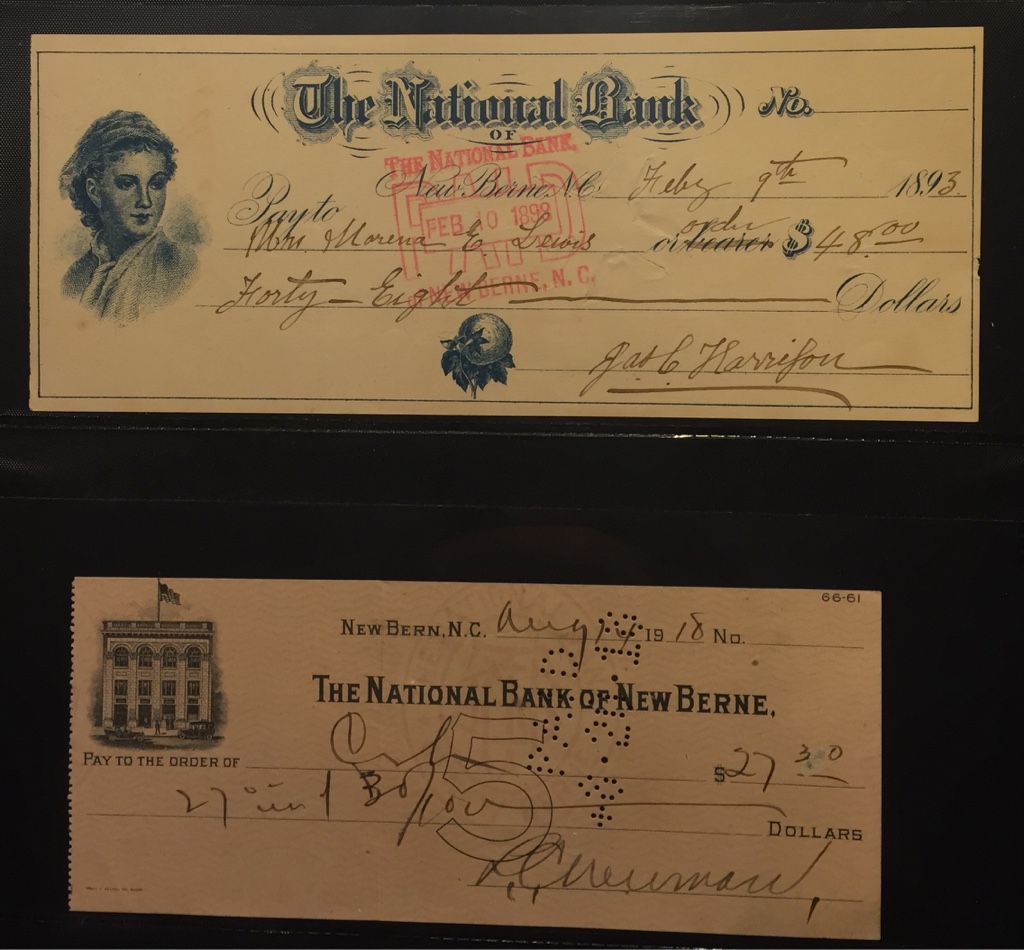 The National Bank No.
OF
THE NATIONAL BANK,
New Berne, N.C. Feby 9th 1893
PAID
FEB 10 1893
Pay to Mrs Morena E. Lewis or bearer order $48.00
NEW BERNE, N.C.
Forty-Eight Dollars
Jas C Harrison
66-61
NEW BERN, N.C. Aug 14 1918 No.
THE NATIONAL BANK OF NEW BERNE,
PAY TO THE ORDER OF Cash $27 30
5
27 and 30/100 DOLLARS
PAID